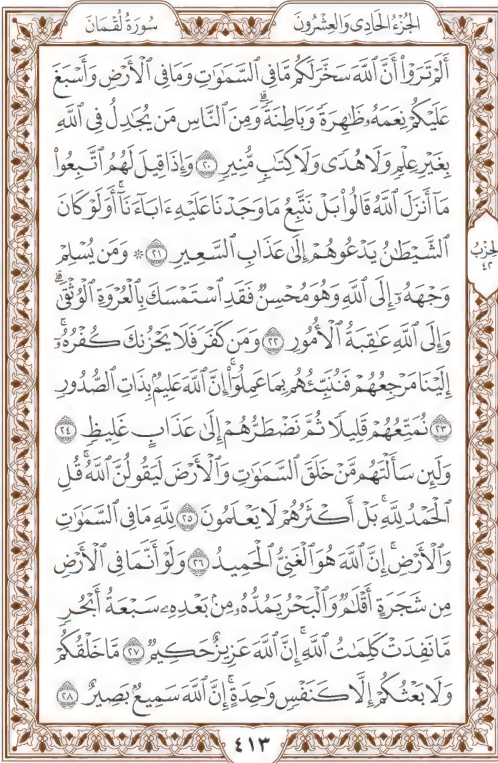 الجُزْءُ الحَادِى وَالعِشْرُونَ
سُورَةُ لُقْمَانَ
أَلَمْ تَرَوْا۟ أَنَّ ٱللَّهَ سَخَّرَ لَكُم مَّا فِى ٱلسَّمَٰوَٰتِ وَمَا فِى ٱلْأَرْضِ وَأَسْبَغَ
عَلَيْكُمْ نِعَمَهُۥ ظَٰهِرَةً وَبَاطِنَةً ۗ وَمِنَ ٱلنَّاسِ مَن يُجَٰدِلُ فِى ٱللَّهِ
بِغَيْرِ عِلْمٍ وَلَا هُدًى وَلَا كِتَٰبٍ مُّنِيرٍ ٢٠ وَإِذَا قِيلَ لَهُمُ ٱتَّبِعُوا۟
مَآ أَنزَلَ ٱللَّهُ قَالُوا۟ بَلْ نَتَّبِعُ مَا وَجَدْنَا عَلَيْهِ ءَابَآءَنَآ ۚ أَوَلَوْ كَانَ
ٱلشَّيْطَٰنُ يَدْعُوهُمْ إِلَىٰ عَذَابِ ٱلسَّعِيرِ ٢١ ۞ وَمَن يُسْلِمْ
وَجْهَهُۥٓ إِلَى ٱللَّهِ وَهُوَ مُحْسِنٌ فَقَدِ ٱسْتَمْسَكَ بِٱلْعُرْوَةِ ٱلْوُثْقَىٰ ۗ
وَإِلَى ٱللَّهِ عَٰقِبَةُ ٱلْأُمُورِ ٢٢ وَمَن كَفَرَ فَلَا يَحْزُنكَ كُفْرُهُۥٓ ۚ
إِلَيْنَا مَرْجِعُهُمْ فَنُنَبِّئُهُم بِمَا عَمِلُوٓا۟ ۚ إِنَّ ٱللَّهَ عَلِيمٌۢ بِذَاتِ ٱلصُّدُورِ
٢٣ نُمَتِّعُهُمْ قَلِيلًا ثُمَّ نَضْطَرُّهُمْ إِلَىٰ عَذَابٍ غَلِيظٍ ٢٤
وَلَئِن سَأَلْتَهُم مَّنْ خَلَقَ ٱلسَّمَٰوَٰتِ وَٱلْأَرْضَ لَيَقُولُنَّ ٱللَّهُ ۚ قُلِ
ٱلْحَمْدُ لِلَّهِ ۚ بَلْ أَكْثَرُهُمْ لَا يَعْلَمُونَ ٢٥ لِلَّهِ مَا فِى ٱلسَّمَٰوَٰتِ
وَٱلْأَرْضِ ۚ إِنَّ ٱللَّهَ هُوَ ٱلْغَنِىُّ ٱلْحَمِيدُ ٢٦ وَلَوْ أَنَّمَا فِى ٱلْأَرْضِ
مِن شَجَرَةٍ أَقْلَٰمٌ وَٱلْبَحْرُ يَمُدُّهُۥ مِنۢ بَعْدِهِۦ سَبْعَةُ أَبْحُرٍ
مَّا نَفِدَتْ كَلِمَٰتُ ٱللَّهِ ۗ إِنَّ ٱللَّهَ عَزِيزٌ حَكِيمٌ ٢٧ مَّا خَلْقُكُمْ
وَلَا بَعْثُكُمْ إِلَّا كَنَفْسٍ وَٰحِدَةٍ ۗ إِنَّ ٱللَّهَ سَمِيعٌۢ بَصِيرٌ ٢٨
الحِزْبُ
٤٢
٤١٣